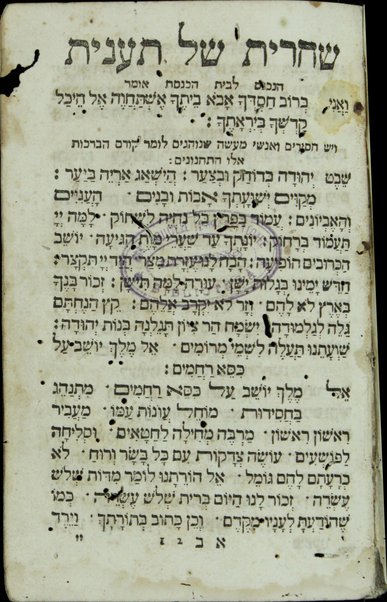 שחרית של תענית
הנכנס לבית הכנסת אומר
וַאֲנִי בְּרוֹב חַסְדְּךָ אָבֹא בֵיתֶךָ אֶשְׁתַּחֲוֶה אֶל הֵיכַל
קָדְשְׁךָ בְּיִרְאָתֶךָ :
ויש חסידים ואנשי מעשה שנוהגים לומר קודם הברכות
אלו התחנונים :
שֵׁבֶט יְהוּדָה בְּדוֹחַק וּבְצַעַר : הֲיִשְׁאַג אַרְיֵה בַּיַּעַר :
מְקַוִּים יְשׁוּעָתְךָ אָבוֹת וּבָנִים הָעֲנִיִּים
וְהָאֶבְיוֹנִים : עֲמוֹד בַּפֶּרֶץ בַּל נִהְיֶה לִשְׂחוֹק לָמָּה יְיָ
תַּעֲמוֹד בְּרָחוֹק : יוֹנָתְךָ עַד שַׁעֲרֵי מָוֶת הִגִּיעָה יוֹשֵׁב
הַכְּרוּבִים הוֹפִיעָה : הָבָה לָּנוּ עֶזְרָת מִצָּר הֲיַד יְיָ תִּקְצָר :
חַדֵּשׁ יָמֵינוּ בְּגָלוּת יָשָׁן עוּרָה לָמָּה תִישַׁן : זְכוֹר בָּנֶיךָ
בְּאֶרֶץ לֹא לָהֶם וְזָר לֹא יִקְרַב אֲלֵהֶם : קֵץ הַנֶּחְתָּם
גַּלֵּה לַגַּלְמוּדָה יִשְׂמַח הַר צִיּוֹן תָּגֵלְנָה בְּנוֹת יְהוּדָה :
שַׁוְעָתֵנוּ תַּעֲלֶה לִשְׁמֵי מְרוֹמִים אֵל מֶלֶךְ יוֹשֵׁב עַל
כִּסֵּא רַחֲמִים :
אֵל מֶלֶךְ יוֹשֵׁב עַל כִּסֵּא רַחֲמִים מִתְנַהֵג
בַּחֲסִידוּת מוֹחֵל עֲוֹנוֹת עַמּוֹ מַעֲבִיר
רִאשׁוֹן רִאשׁוֹן מַרְבֶּה מְחִילָה לַחַטָּאִים וּסְלִיחָה
לַפּוֹשְׁעִים עוֹשֶׂה צְדָקוֹת עִם כָּל בָּשָׂר וְרוּחַ לֹא
כְרָעָתָם לָהֶם גּוֹמֵל אֵל הוֹרֵתָנוּ לוֹמַר מִדּוֹת שְׁלֹשׁ
עֶשְׂרֵה זְכוֹר לָנוּ הַיּוֹם בְּרִית שְׁלֹשׁ עֶשְׂרֵה כְּמוֹ
שֶׁהוֹדַעְתָּ לֶעָנָיו מִקֶּדֶם וְכֵן כָּתוּב בְּתוֹרָתֶךָ וַיֵּרֶד
א ב 12 יי